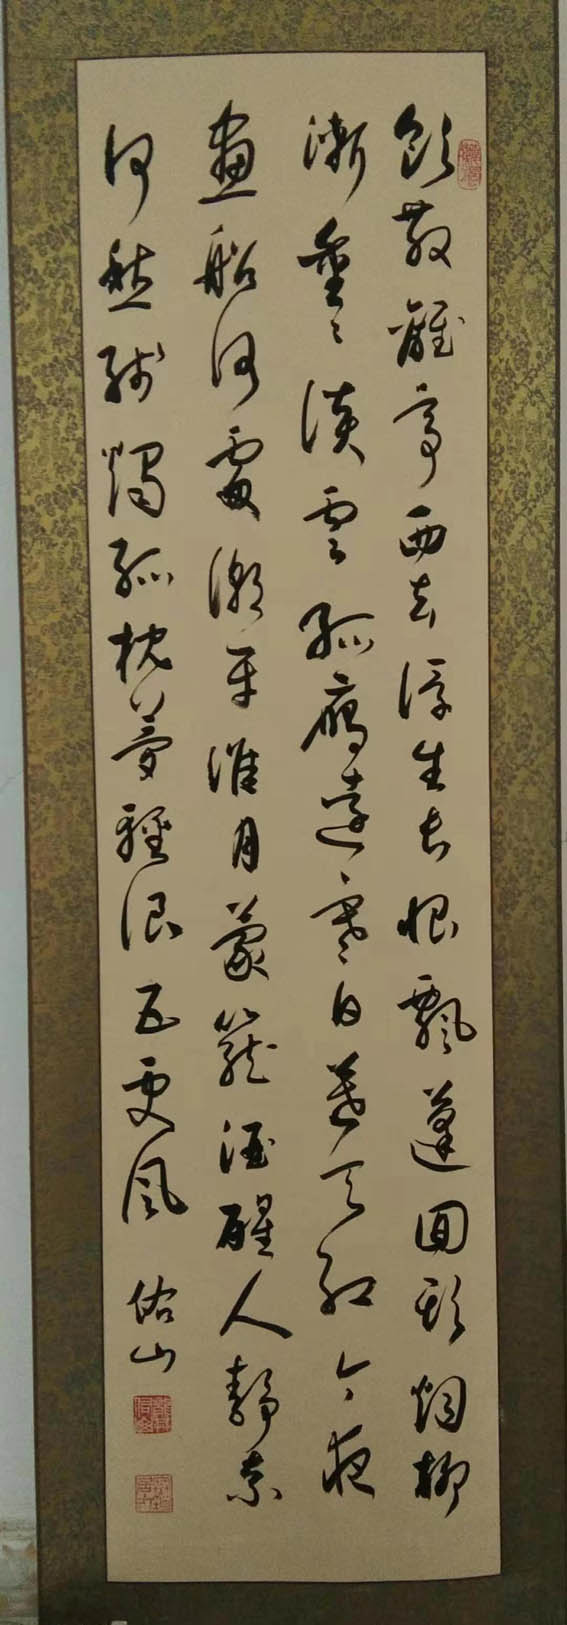 飲散離亭西去浮生长恨飄蓬回頭烟柳
漸重重淡雲孤雁遠寒日暮天紅今夜
畫船何處潮平淮月蒙籠酒醒人靜奈
何愁残燭孤枕夢輕浪五更風 佑山